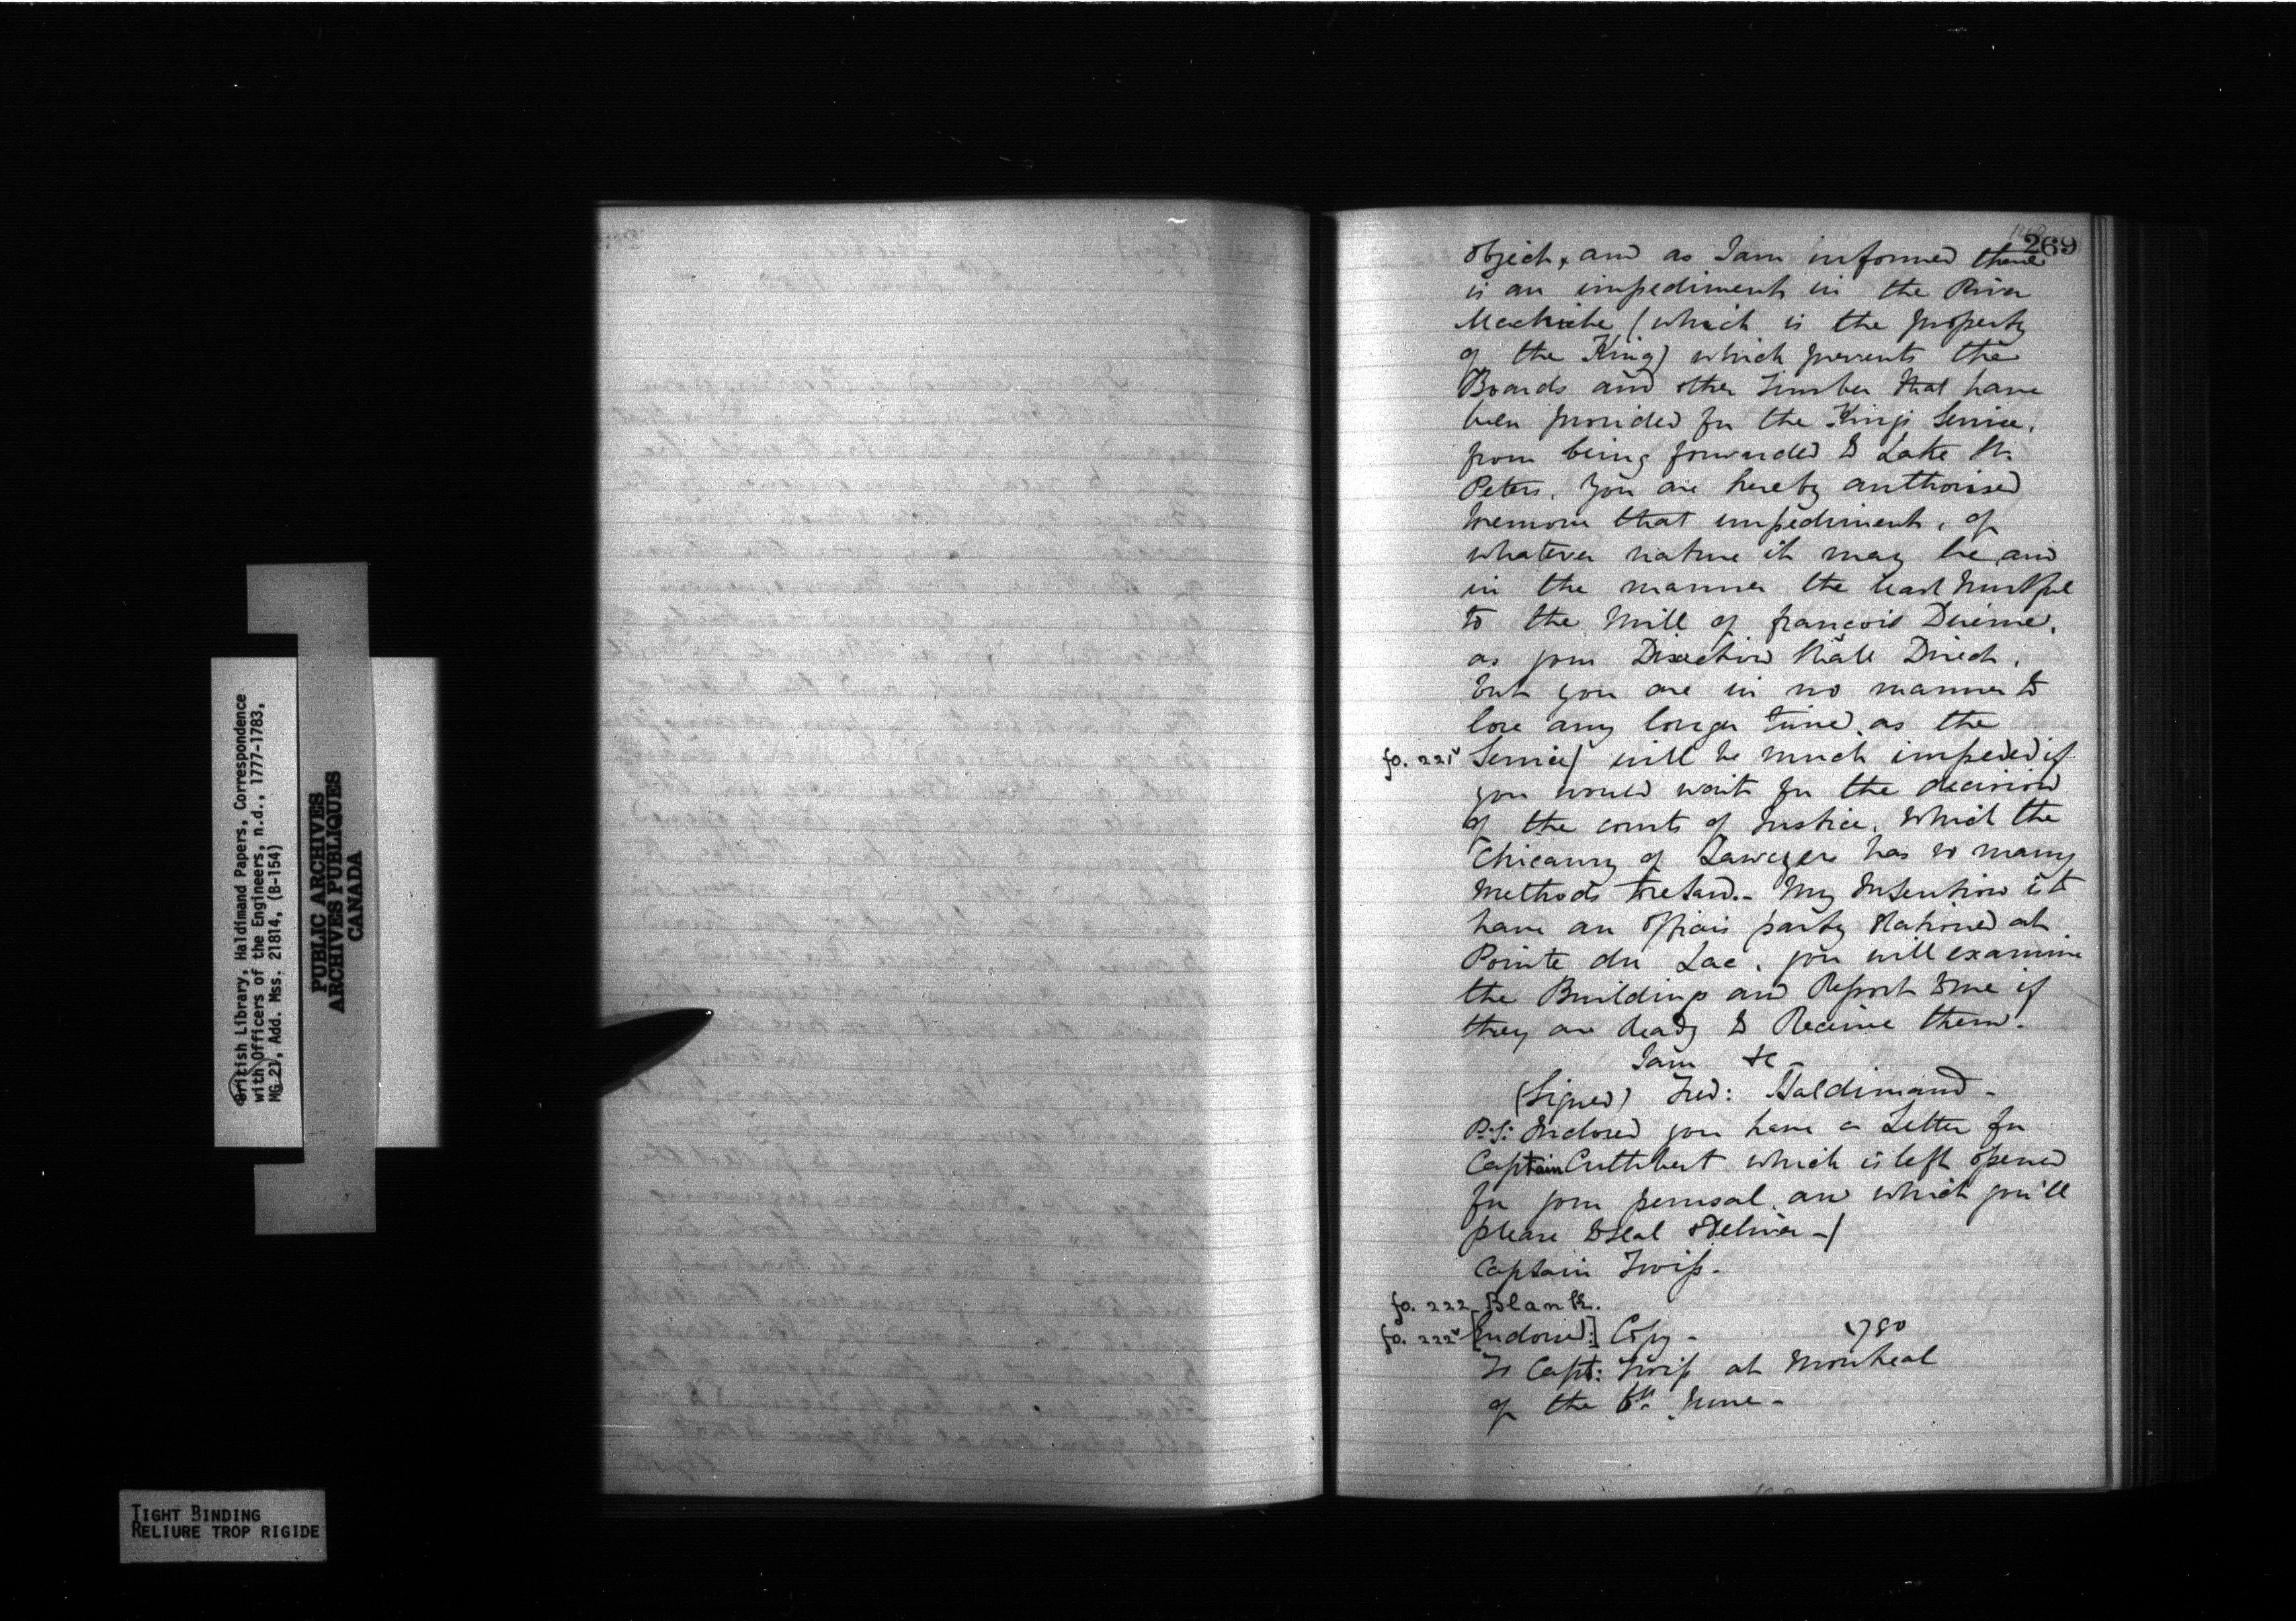 British Library, Haldimand Papers, Correspondence
with Officers of the Engineers, n.d., 1777-1783,
MG 21, Add. Mss. 21814, (B-154)
PUBLIC ARCHIVES
ARCHIVES PUBLIQUES
CANADA
TIGHT BINDING
RELIURE TROP RIGIDE
269
object, and as I am informed there
is an impediment in the River
Machiche (which is the property
of the King) which prevents the
Boards and other Timber that have
been provided for the Kings Service,
from being forwarded to Lake St.
Peters. You are hereby authorised
to remove that impediment, of
whatever nature it may be, and
in the manner the least hurtful
to the Mill of françois
as your Direction shall Direct,
but you are in no manner to
lose any longer time, as the
fo. 221v Service/ will be much impeded if
you would wait for the decision
of the courts of Justice, which the
Chicanry of Lawyers has so many
Methods to retard.- My Intention is to
have an party stationed at
Pointe du Lac, you will examine
the Buildings and Report to me if
they are Ready to Receive them.
I am &c -
(Signed) Fred: Haldimand -
P.S: Inclosed you have a Letter for
Captain Cuthbert which is left opened
for your perusal, and which you'll
please to seal & deliver -/
Captain Twiss.
fo. 222 Blank.
fo. 222v [Endorsed:] Copy - 1780
To Capt: Twiss at Montreal
of the June -